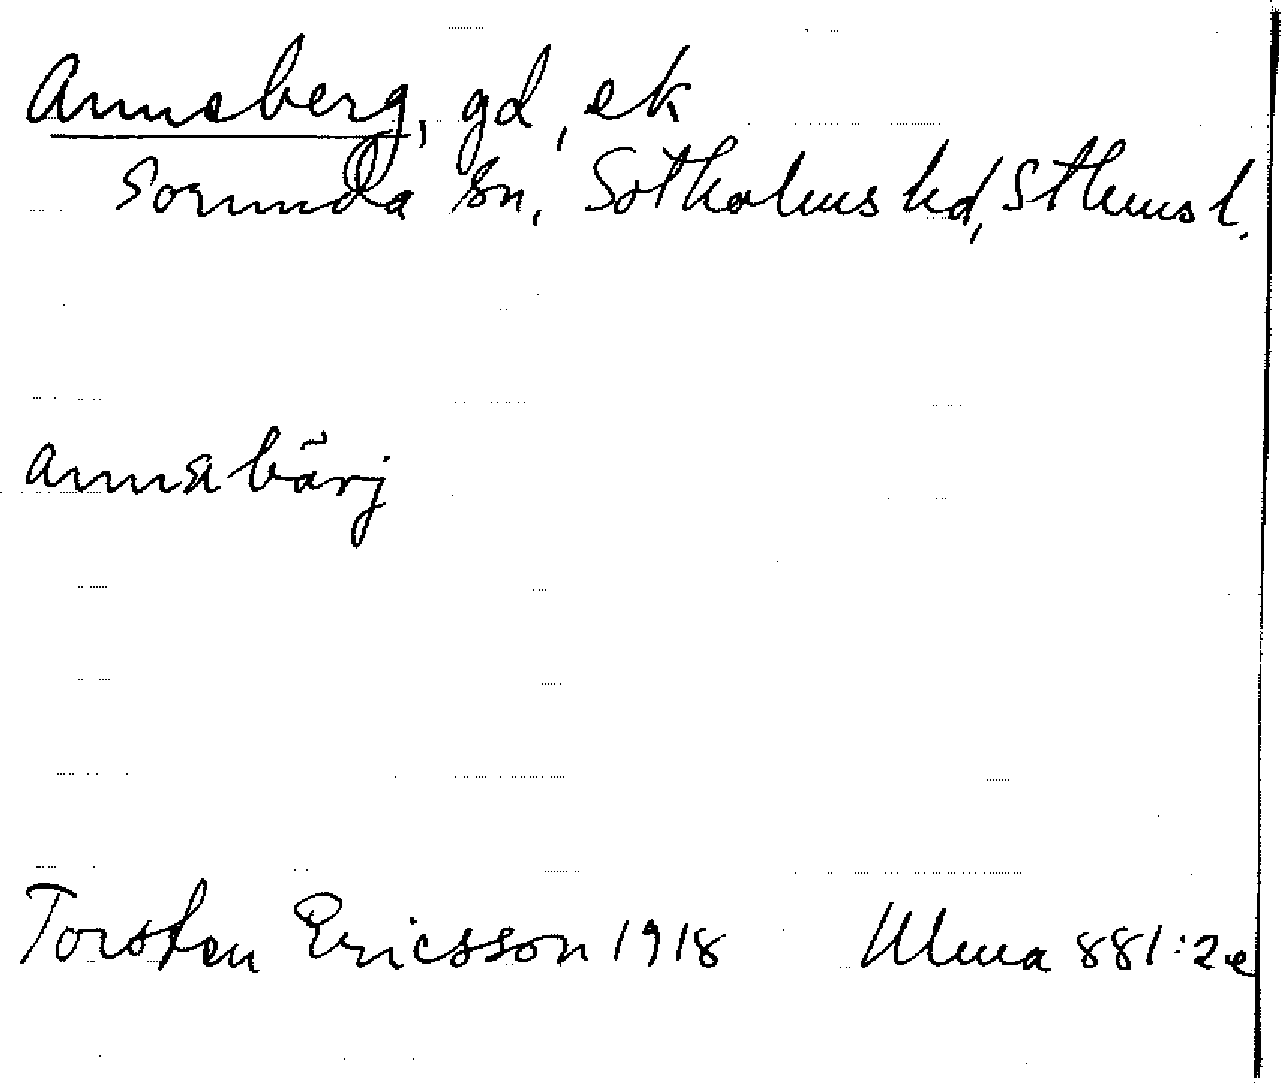 Anneberg, gd, ek
Sorunda sn, Sotholms hd, Sthms l.
annabärj
Torsten Ericsson 1918 Ulma 881:2e